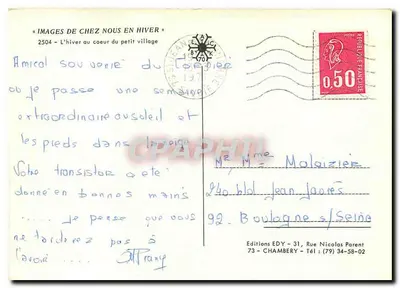 « IMAGES DE CHEZ NOUS EN HIVER »
2504 - L'hiver au coeur du petit village
Amical souvenir du
où je passe une semaine
extraordinaire au soleil et
les pieds dans la neige
Votre transistor a été
donné en bonnes mains
..... je pense que vous
ne tarderez pas à
l'avoir ....
REPUBLIQUE FRANCAISE
0,50
Mr Mme Malaizier
240 bld Jean Jaurès
92. Boulogne s/Seine
Editions EDY - 31, Rue Nicolas Parent
73 - CHAMBERY - Tél : (79) 34-58-02
CPAPHIL